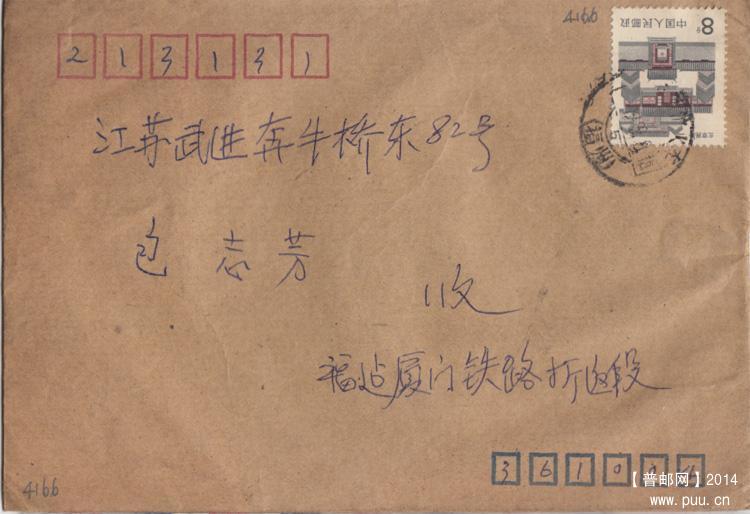 4166
中国人民邮政
8分
213131
江苏武进奔牛桥东82号
包志芳 收
福建厦门铁路折返段
36100
4166
【普邮网】2014
www.puu.cn